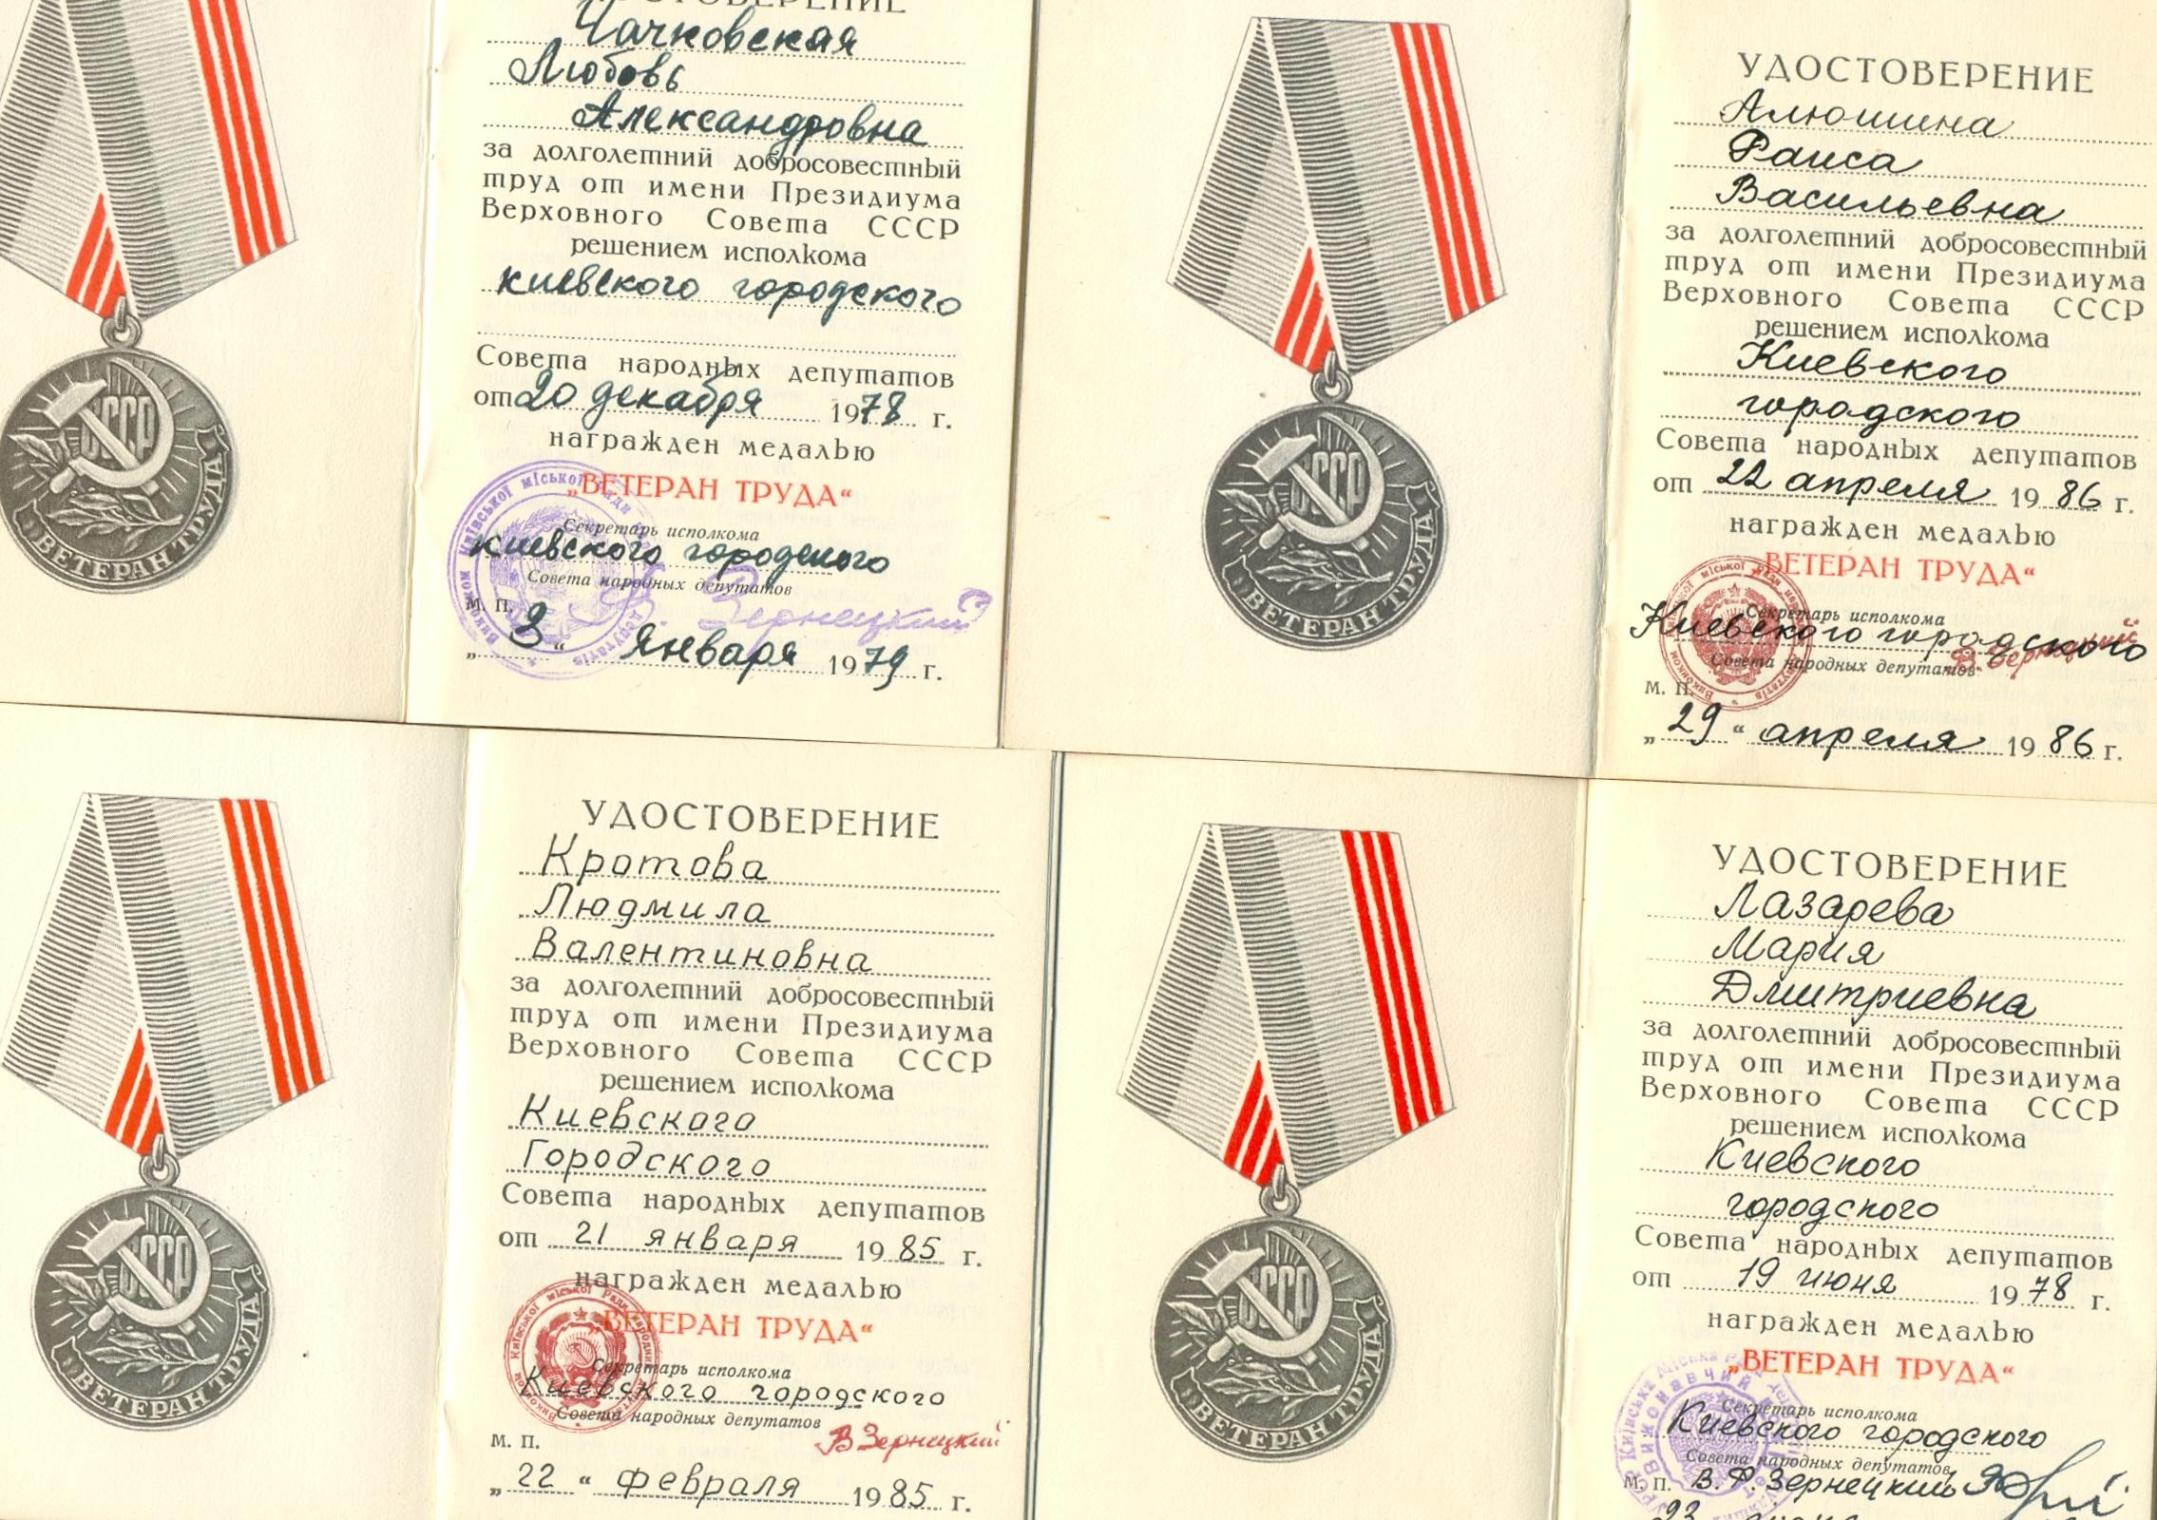 УДОСТОВЕРЕНИЕ
Чачковская
Любовь
Александровна
за долголетний добросовестный
труд от имени Президиума
Верховного Совета СССР
решением исполкома
киевского городского
Совета народных депутатов
от 20 декабря 1978 г.
награжден медалью
„ВЕТЕРАН ТРУДА“
Секретарь исполкома
киевского городского
Совета народных депутатов
М. П. В. Зернецкий
„3“ января 1979 г.
СССР
ВЕТЕРАН ТРУДА
УДОСТОВЕРЕНИЕ
Алюшина
Раиса
Васильевна
за долголетний добросовестный
труд от имени Президиума
Верховного Совета СССР
решением исполкома
Киевского
городского
Совета народных депутатов
от 22 апреля 1986 г.
награжден медалью
„ВЕТЕРАН ТРУДА“
Секретарь исполкома
Киевского городского
Совета народных депутатов
В. Зернецкий
М. П.
„29“ апреля 1986 г.
СССР
ВЕТЕРАН ТРУДА
УДОСТОВЕРЕНИЕ
Кротова
Людмила
Валентиновна
за долголетний добросовестный
труд от имени Президиума
Верховного Совета СССР
решением исполкома
Киевского
Городского
Совета народных депутатов
от 21 января 1985 г.
награжден медалью
„ВЕТЕРАН ТРУДА“
Секретарь исполкома
Киевского городского
Совета народных депутатов
М. П. В Зернецкий
„22“ февраля 1985 г.
СССР
ВЕТЕРАН ТРУДА
УДОСТОВЕРЕНИЕ
Лазарева
Мария
Дмитриевна
за долголетний добросовестный
труд от имени Президиума
Верховного Совета СССР
решением исполкома
Киевского
городского
Совета народных депутатов
от 19 июня 1978 г.
награжден медалью
„ВЕТЕРАН ТРУДА“
Секретарь исполкома
Киевского городского
Совета народных депутатов
М. П. В. Ф. Зернецкий
23 июня
СССР
ВЕТЕРАН ТРУДА